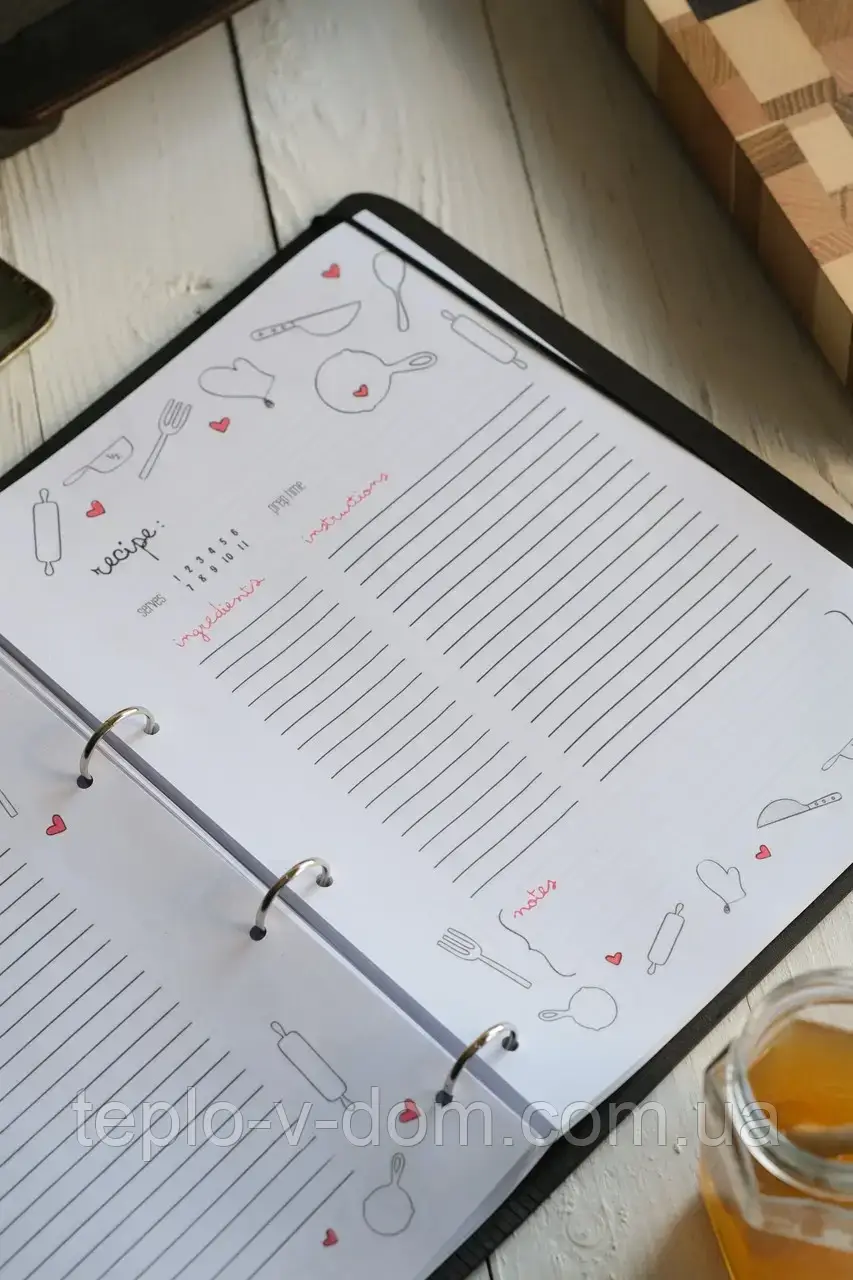 recipe:
serves
1 2 3 4 5 6
7 8 9 10 11
prep time
ingredients
instructions
notes
teplo-v-dom.com.ua